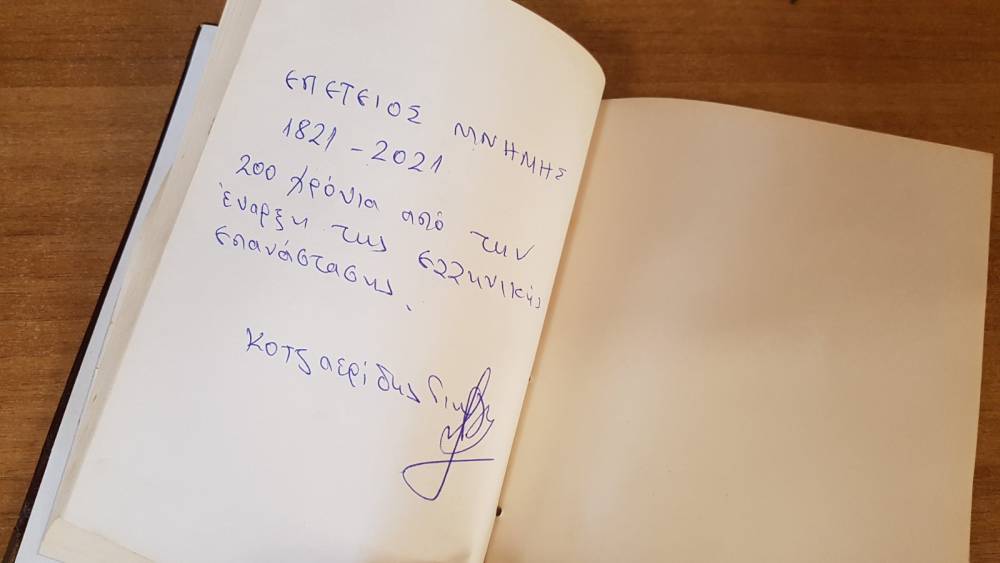 ΕΠΕΤΕΙΟΣ ΜΝΗΜΗΣ
1821 - 2021
200 χρόνια από την
έναρξη της ελληνικής
επανάστασης.
Κοτζαερίδης